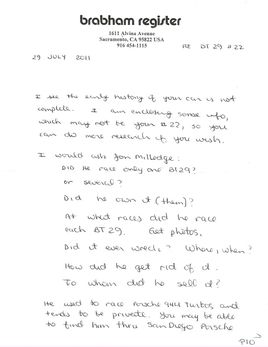 brabham register
1611 Alvina Avenue
Sacramento, CA 95822 USA
916 454-1115
RE BT 29 #22
29 JULY 2011
I see the early history of your car is not
complete. I am enclosing some info,
which may not be your #22, so you
can do more research if you wish.
I would ask Jon Milledge:
Did he race only one BT29?
or several?
Did he own it (them)?
At what races did he race
each BT29. Get photos.
Did it ever wreck? Where, when?
How did he get rid of it.
To whom did he sell it?
He used to race Porsche 944 Turbos, and
tends to be private. You may be able
to find him thru San Diego Porsche